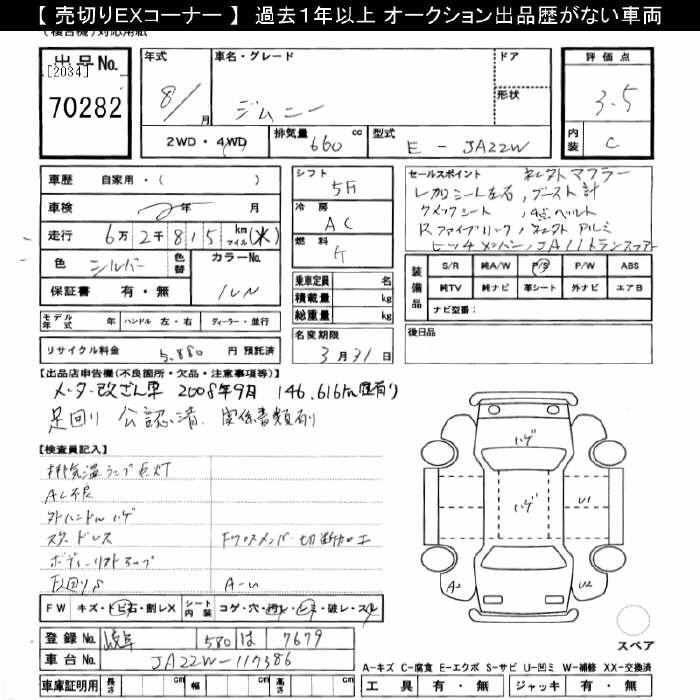 【 売切りEXコーナー 】 過去1年以上 オークション出品歴がない車両
(複合機)対応用紙
出品No.
[2034]
70282
年式
8/
月
車名・グレード
ジムニー
ドア
形状
評価点
3.5
内装
C
2WD・4WD
排気量
660
cc
型式
E-JA22W
車歴 自家用・( )
車検
2年 月
走行 6万2千815 km マイル (※)
色 シルバー
色替
カラーNo.
保証書 有・無
シフト
5F
冷房
AC
燃料
ガ
乗車定員 名
積載量 kg
総重量 kg
名変期限
3月31日
セールスポイント 社外マフラー
レカロシート左右,ブースト計
クイックシート,4点ベルト
Rファイプリンク,社外アルミ
ヒッチメンバー,JA11トランスファー
装備品
S/R 純A/W P/S P/W ABS
純TV 純ナビ 革シート 外ナビ エアB
ナビ型番:
モデル年式 年 ハンドル 左・右 ディーラー・並行
リサイクル料金 5,880 円 預託済
後日品
【出品店申告欄(不良箇所・欠品・注意事項等)】
メーター改ざん車 2008年9月 146,616km歴有り
足回り 公認済 関係書類有り
【検査員記入】
排気温ランプ点灯
AC不良
外ハンドルハゲ
スタッドレス
Fクロスメンバー切断加工
ボディーリフトアップ
下回りS
A-U
ハゲ
ハゲ
U1
A2
U2
FW キズ・トビ石・割レX
シート内装
コゲ・穴・汚レ・シミ・破レ・スレ
登録No. 岐阜 580 は 7679
車台No. JA22W-117386
スペア
A-キズ C-腐食 E-エクボ S-サビ U-凹ミ W-補修 XX-交換済
車庫証明用 長さ cm 幅 cm 高さ cm
工具 有・無 ジャッキ 有・無